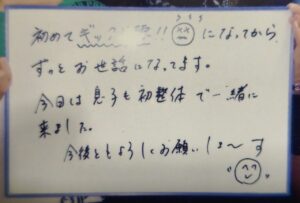 初めてギックリ腰!!になってから
ずっとお世話になってます。
今日は息子も初整体で一緒に
来ました。
今後ともよろしくお願いしま〜す